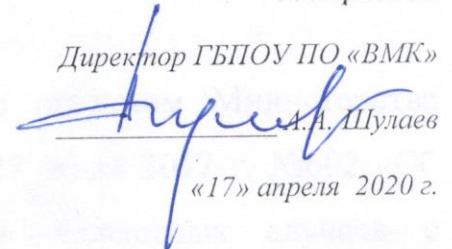 Директор ГБПОУ ПО «ВМК»
А.А. Шулаев
«17» апреля 2020 г.